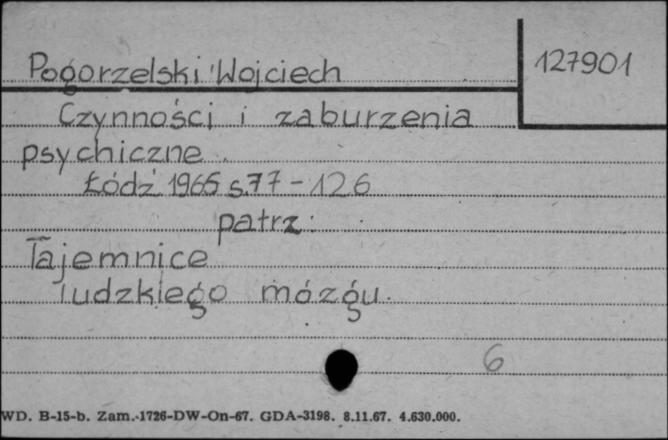 Pogorzelski Wojciech
127901
Czynności i zaburzenia
psychiczne.
Łódź 1965 s.77-126
patrz:
Tajemnice
ludzkiego mózgu.
6
WD. B-15-b. Zam.-1726-DW-On-67. GDA-3198. 8.11.67. 4.630.000.